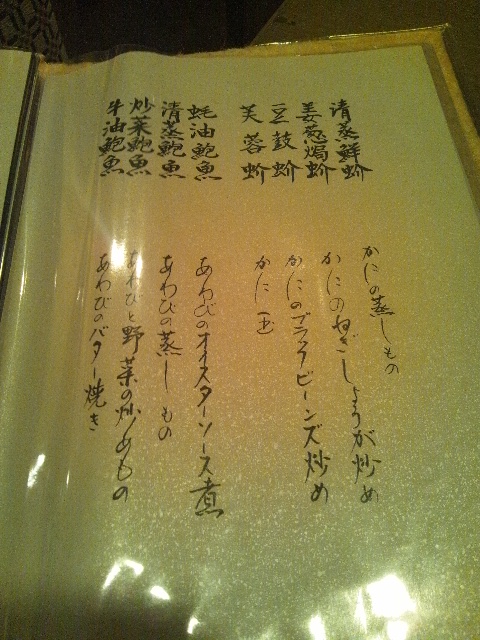 清蒸鮮蚧
姜葱焗蚧
豆鼓蚧
芙蓉蚧
蚝油鮑魚
清蒸鮑魚
炒菜鮑魚
牛油鮑魚
かにの蒸しもの
かにのねぎしょうが炒め
かにのブラックビーンズ炒め
かに玉
あわびのオイスターソース煮
あわびの蒸しもの
あわびと野菜の炒めもの
あわびのバター焼き